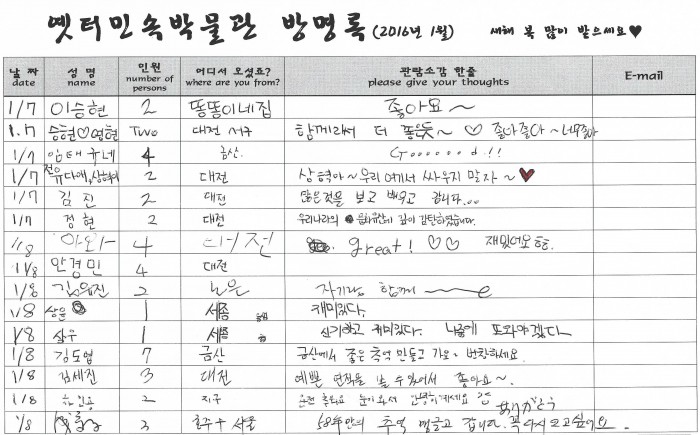 옛터민속박물관 방명록 (2016년 1월) 새해 복 많이 받으세요♥
날짜 date 성명 name 인원 number of persons 어디서 오셨죠? where are you from? 관람소감 한줄 please give your thoughts E-mail
1/7 이승현 2 똥똥이네집 좋아요~
1.7 승현♡영현 Two 대전 서구 함께라서 더 좋은듯~ ♡ 좋아좋아~너무좋아
1/7 4 금산. Goooood!!
1/7 2 대전 상혁아~우리 여기서 싸우지 말자~♥
1/7 김진 2 대전 많은것을 보고 배우고 갑니다...
1/7 정현 2 대전 우리나라의 문화유산에 깊이 감탄하였습니다.
1/8 4 대전 great! ♡♡ 재밌어요
1/8 안경민 4 대전
1/8 2 자기랑 함께
1/8 상윤 1 세종 재미있다.
1/8 1 세종 신기하고 재미있다. 나중에 또와야겠다
1/8 김도엽 7 금산 금산에서 좋은 추억 만들고 가요~ 번창하세요
1/8 김세진 3 대전 예쁜 연적을 볼 수 있어서 좋아요~.
1/8 2 지구 눈이와서
1/8 3 호주 + 서울 58年만의 추억 갑니다. 꼭 다시 오고싶어요. ありがとう